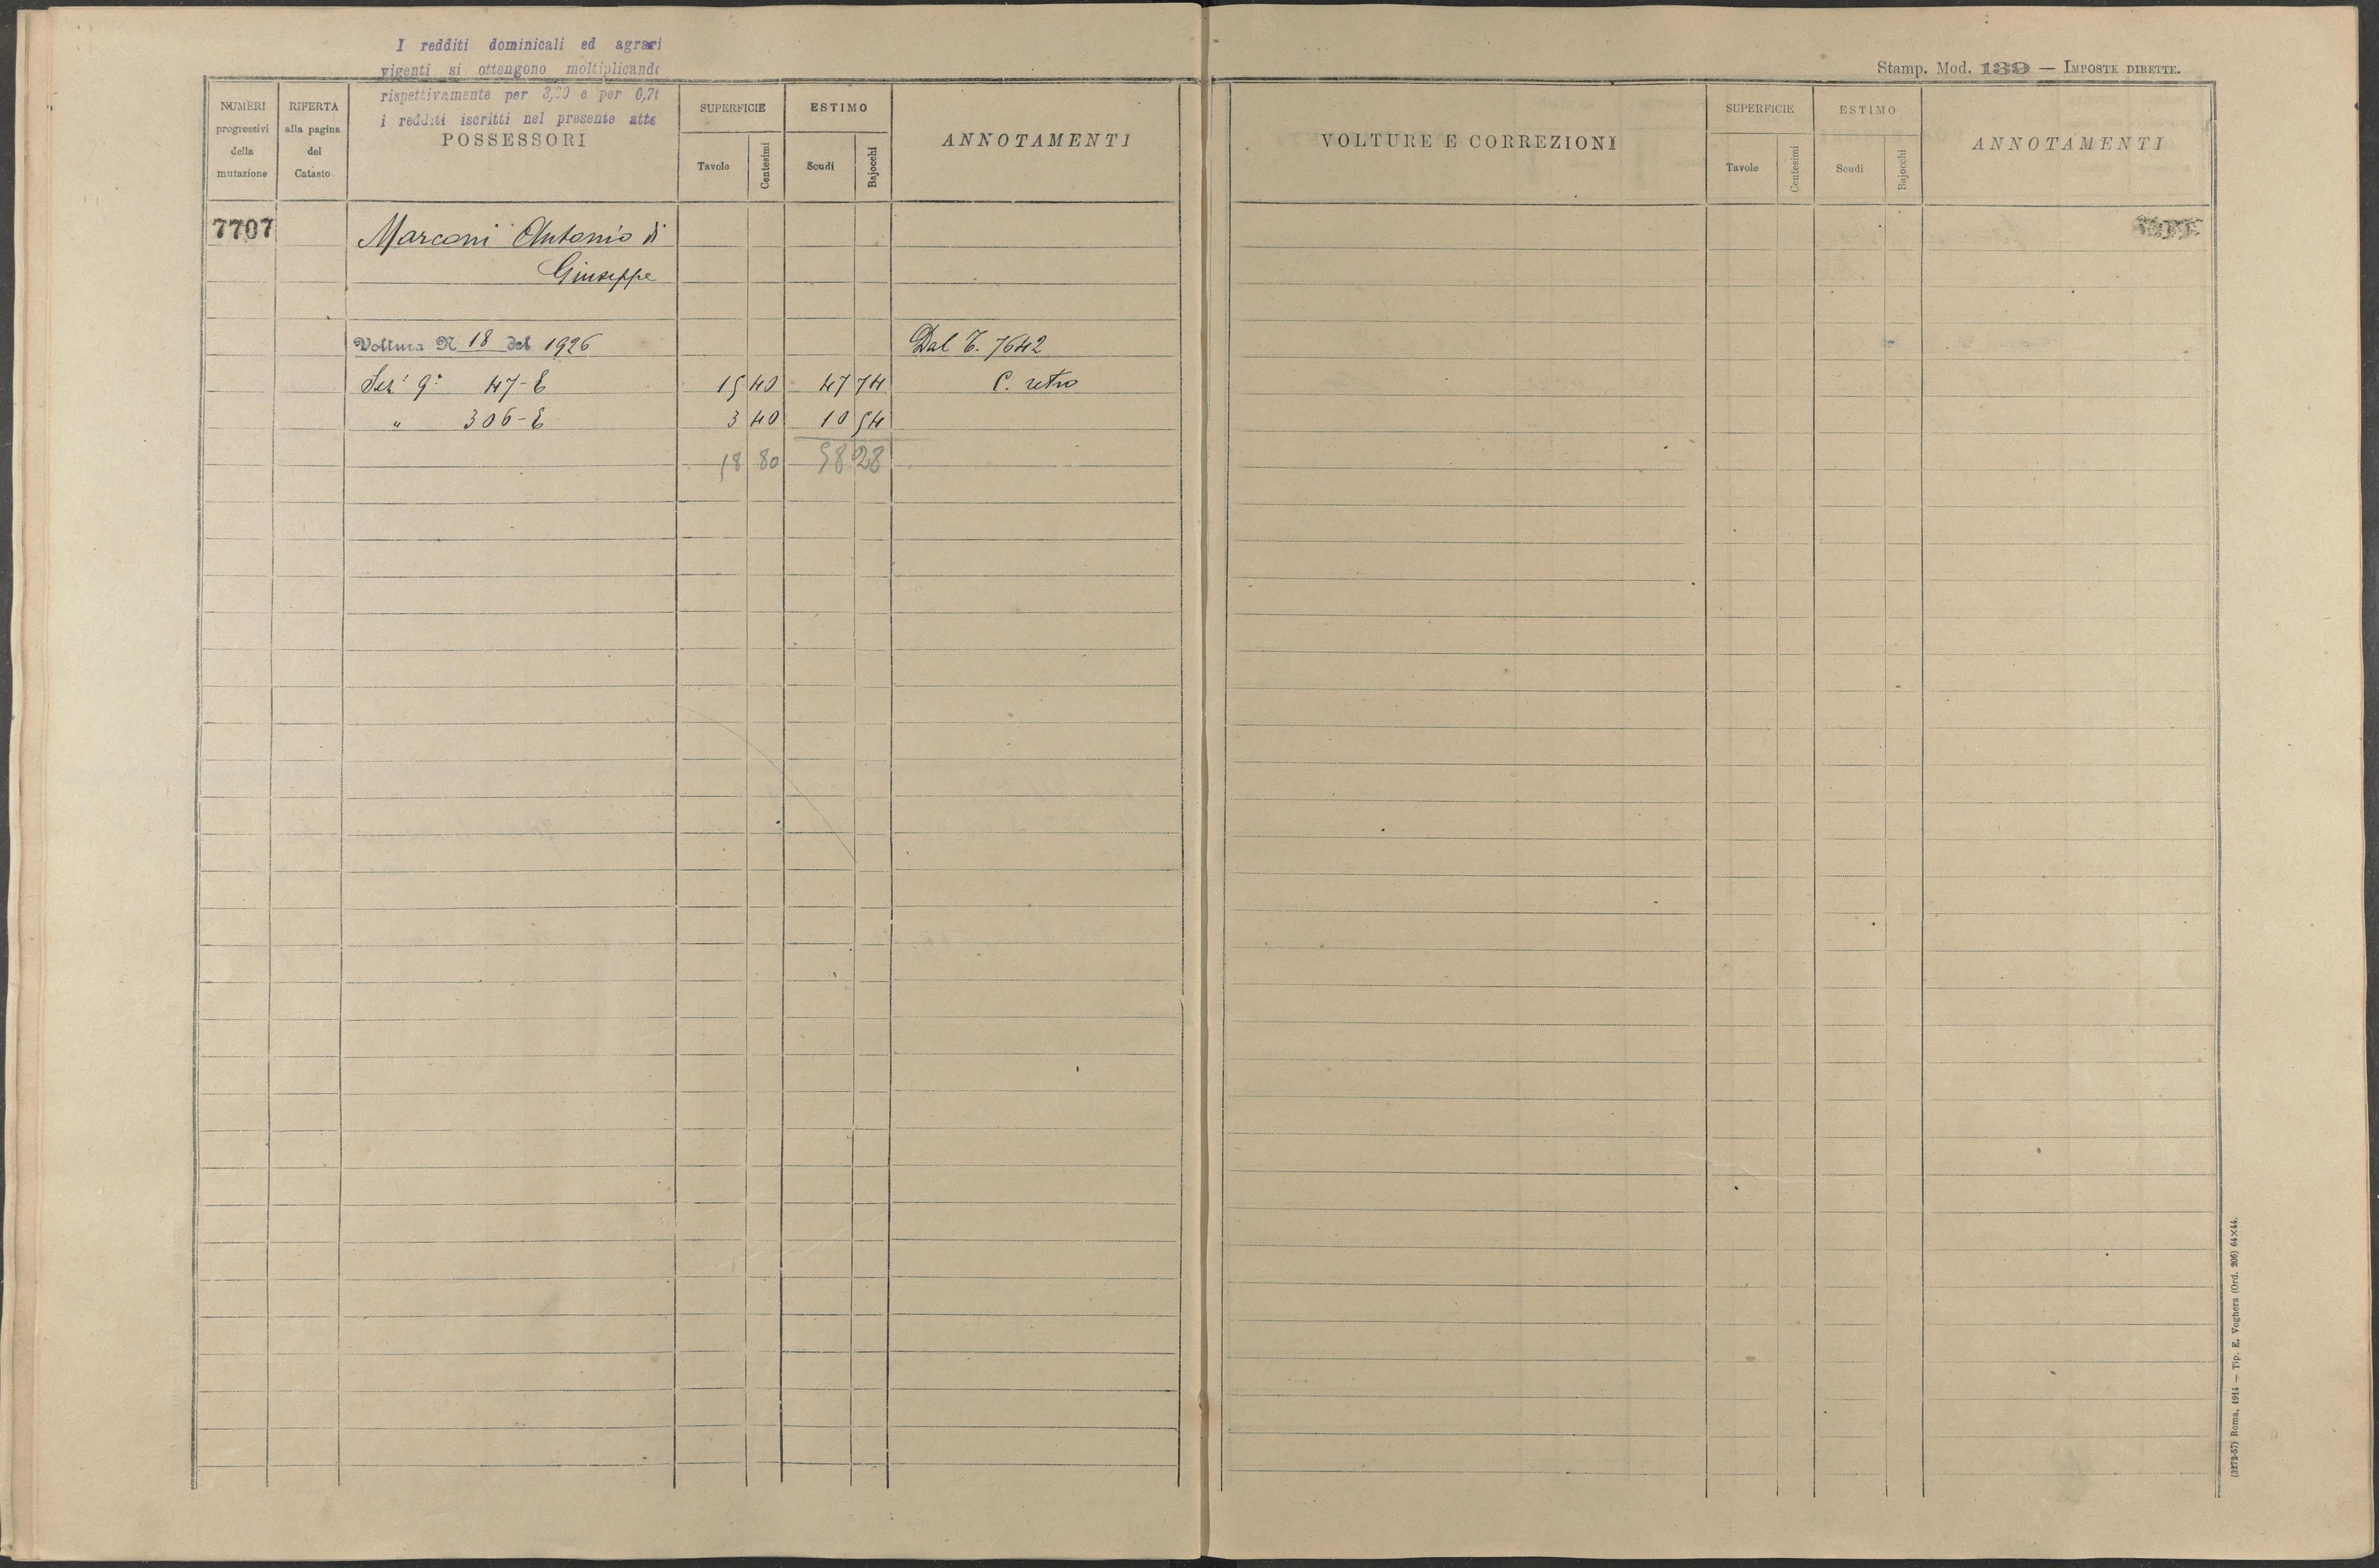 I redditi dominicali ed agrari
vigenti si ottengono moltiplicando
rispettivamente per 3,20 e per 0,70
i redditi iscritti nel presente atto
NUMERI progressivi della mutazione
RIFERTA alla pagina del Catasto
POSSESSORI
SUPERFICIE
Tavole
Centesimi
ESTIMO
Scudi
Bajocchi
ANNOTAMENTI
7707
Marconi Antonio di
Giuseppe
Voltura N 18 del 1926
Dal T. 7642
Sez. 9ª 47-E 15 40 47 74 C. retro
" 306-E 3 40 10 54
18 80 58 28
Stamp. Mod. 139 — IMPOSTE DIRETTE.
VOLTURE E CORREZIONI
SUPERFICIE
Tavole
Centesimi
ESTIMO
Scudi
Bajocchi
ANNOTAMENTI
(3272-57) Roma, 1914 — Tip. E. Voghera (Ord. 206) 64×44.